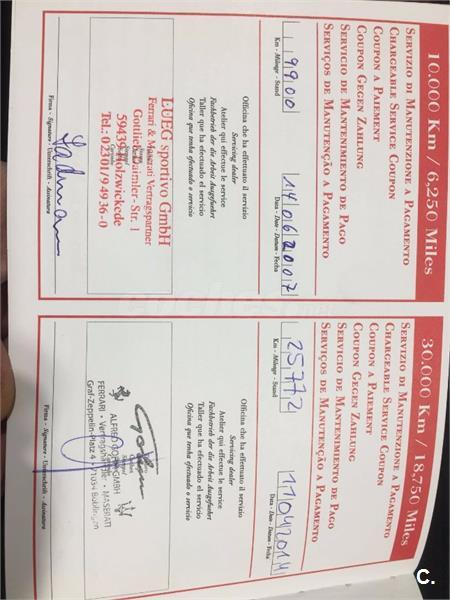 10.000 Km / 6,250 Miles
Servizio di Manutenzione a Pagamento
Chargeable Service Coupon
Coupon a Paiement
Coupon Gegen Zahlung
Servicio de Mantenimento de Pago
Serviços de Manutenção a Pagamento
9900
Km - Mileage - Stand
14062007
Data - Date - Datum - Fecha
Officina che ha effettuato il servizio
Servicing dealer
Atelier qui effectue le service
Fachbetrieb der die Arbeit Ausgefuehrt
Taller que ha efectuado el servicio
Oficina que tenha efectuado o serviço
LUEG sportivo GmbH
Ferrari & Maserati Vertragspartner
Gottlieb-Daimler-Str. 1
59439 Holzwickede
Tel.: 02301/94936-0
Firma - Signature - Unterschrift - Assinatura
30.000 Km / 18,750 Miles
Servizio di Manutenzione a Pagamento
Chargeable Service Coupon
Coupon a Paiement
Coupon Gegen Zahlung
Servicio de Mantenimento de Pago
Serviços de Manutenção a Pagamento
25.772
Km - Mileage - Stand
11042014
Data - Date - Datum - Fecha
Officina che ha effettuato il servizio
Servicing dealer
Atelier qui effectue le service
Fachbetrieb der die Arbeit Ausgefuehrt
Taller que ha efectuado el servicio
Oficina que tenha efectuado o serviço
GMBH
FERRARI - MASERATI
Graf-Zeppelin-Platz
Firma - Signature - Unterschrift - Assinatura
C.